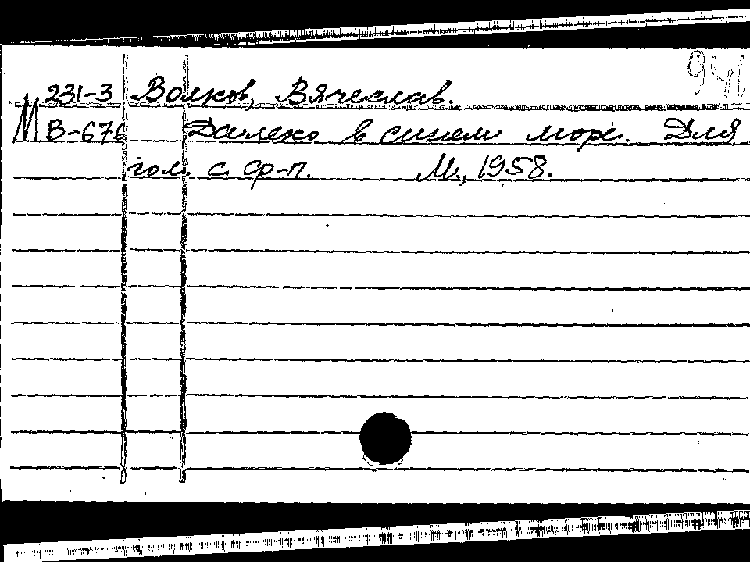 231-3 Волков, Вячеслав.
М В-676 Далеко в синем море. Для
гол. с ф-п. М., 1958.